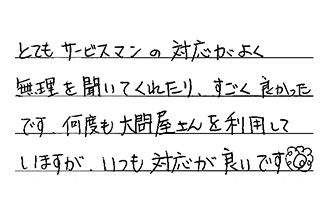 とてもサービスマンの対応がよく
無理を聞いてくれたり、すごく良かった
です。何度も大問屋さんを利用して
いますが、いつも対応が良いです